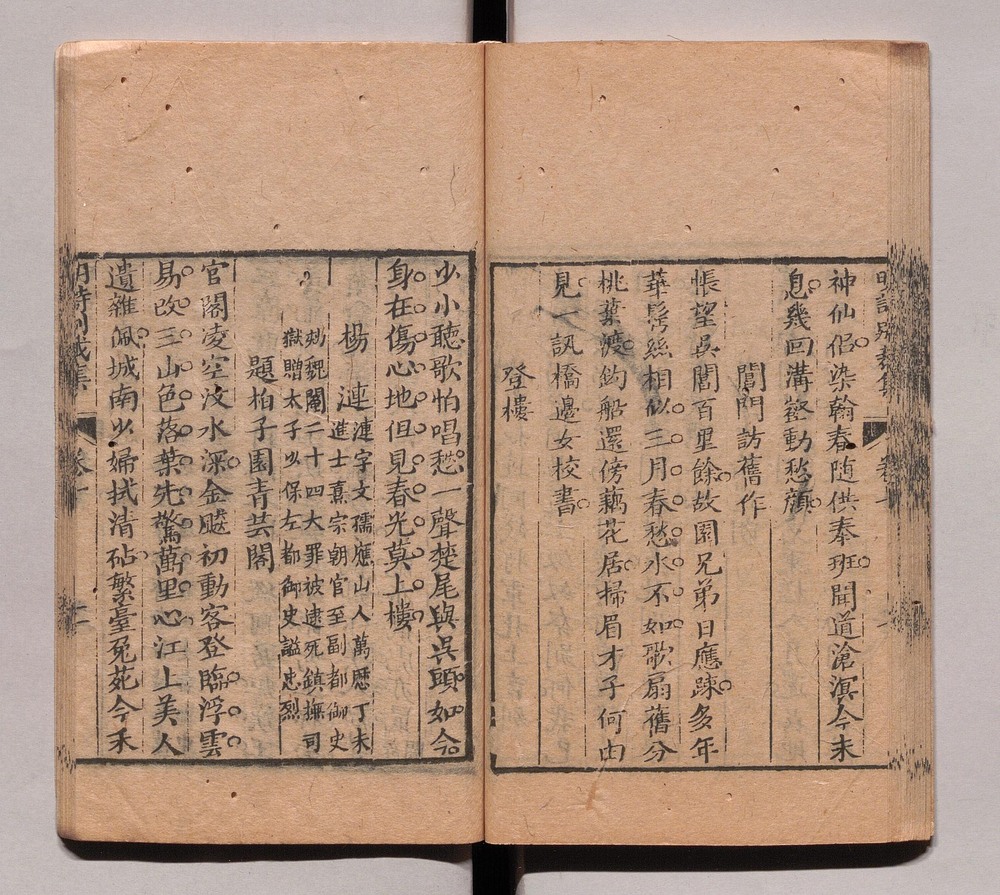 明詩別裁集
神仙侶染翰春随供奉班聞道滄溟今未
息幾回溝壑動愁顏
閶門訪舊作
悵望吳閶百里餘故園兄弟日應踈多年
華髩絲相似三月春愁水不如歌扇舊分
桃葉渡釣船還傍藕花居掃眉才子何由
見一訊橋邊女校書
登樓
少小聽歌怕唱愁一聲楚尾與吳頭如今
身在傷心地但見春光莫上樓
楊漣
漣字文孺應山人萬歷丁未
進士熹宗朝官至副都御史
劾魏閹二十四大罪被逮死鎮撫司
獄贈太子少保左都御史謚忠烈
題柏子園青芸閣
官閣凌空汶水深金飈初動客登臨浮雲
易改三山色落葉先驚萬里心江上美人
遺雜佩城南少婦拭清砧繁臺兔苑今禾
明詩別裁集 卷十